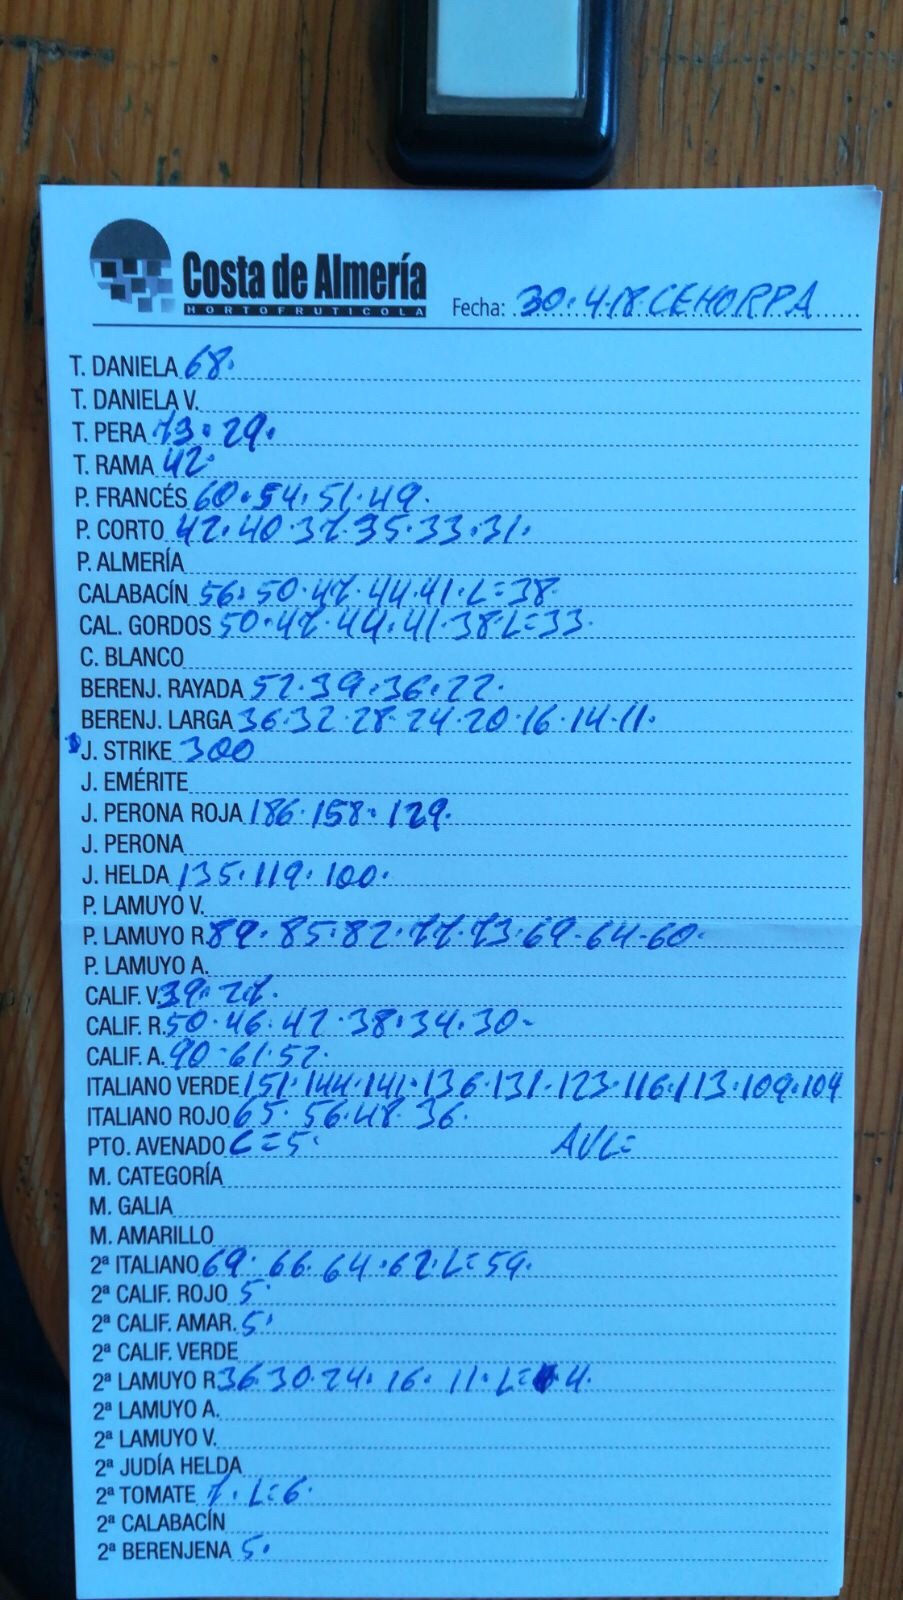 Costa de Almería
HORTOFRUTICOLA
Fecha: 30.4.18.CEHORPA
T. DANIELA 68.
T. DANIELA V.
T. PERA 73.29.
T. RAMA 42.
P. FRANCÉS 60.54.51.49.
P. CORTO 42.40.37.35.33.31.
P. ALMERÍA
CALABACÍN 56.50.47.44.41.L=38.
CAL. GORDOS 50.47.44.41.38.L=33.
C. BLANCO
BERENJ. RAYADA 52.39.36.22.
BERENJ. LARGA 36.32.28.24.20.16.14.11.
J. STRIKE 300
J. EMÉRITE
J. PERONA ROJA 186.158.129.
J. PERONA
J. HELDA 135.119.100.
P. LAMUYO V.
P. LAMUYO R. 89.85.82.77.73.69.64.60.
P. LAMUYO A.
CALIF. V. 39.27.
CALIF. R. 50.46.42.38.34.30-
CALIF. A. 90.61.52.
ITALIANO VERDE 151.144.141.136.131.123.116.113.109.104
ITALIANO ROJO 65.56.48.36.
PTO. AVENADO L=5. AVL=
M. CATEGORÍA
M. GALIA
M. AMARILLO
2ª ITALIANO 69.66.64.62.L=59.
2ª CALIF. ROJO 5.
2ª CALIF. AMAR. 5.
2ª CALIF. VERDE
2ª LAMUYO R 36.30.24.16.11.L=4.
2ª LAMUYO A.
2ª LAMUYO V.
2ª JUDÍA HELDA
2ª TOMATE 7.L=6.
2ª CALABACÍN
2ª BERENJENA 5.